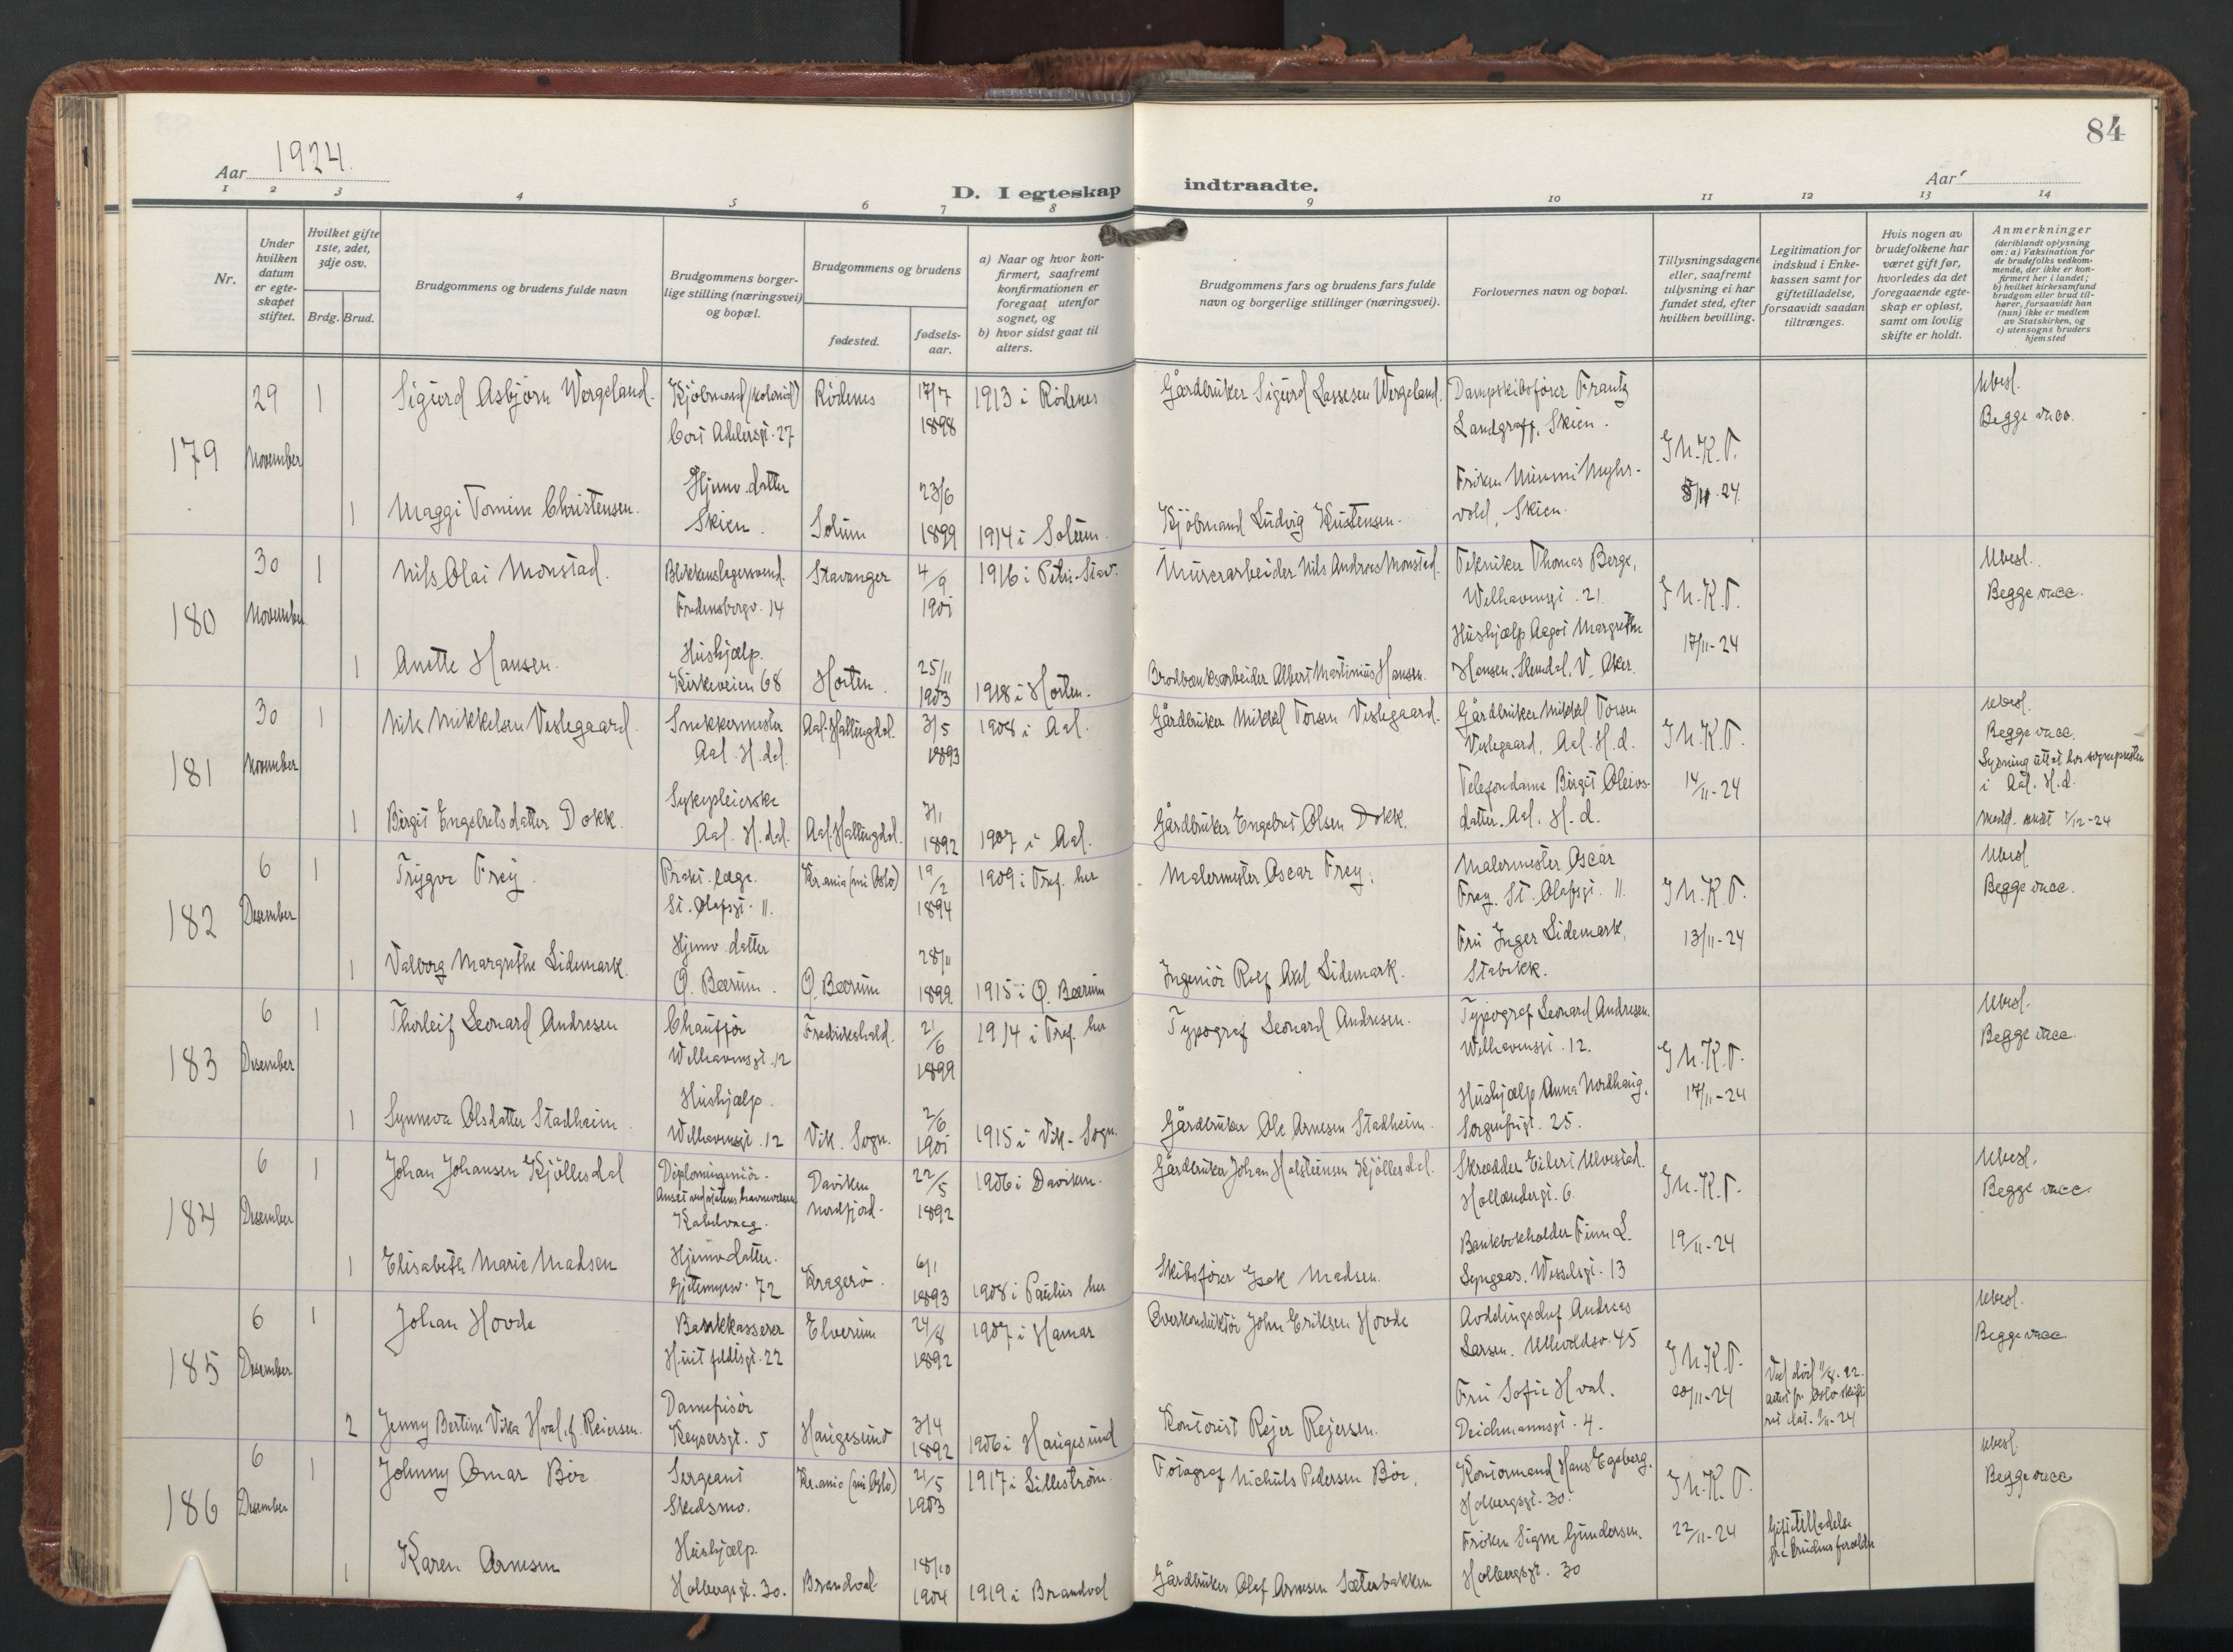 84
Aar 1924.
D. I egteskap indtraadte.
Aar
1 2 3 4 5 6 7 8 9 10 11 12 13 14
Nr.
Under hvilken datum er egteskapet stiftet.
Hvilket gifte 1ste, 2det, 3dje osv.
Brdg. Brud.
Brudgommens og brudens fulde navn
Brudgommens borgerlige stilling (næringsvei) og bopæl.
Brudgommens og brudens
fødested.
fødselsaar.
a) Naar og hvor konfirmert, saafremt konfirmationen er foregaat utenfor sognet, og
b) hvor sidst gaat til alters.
Brudgommens fars og brudens fars fulde navn og borgerlige stillinger (næringsvei).
Forlovernes navn og bopæl.
Tillysningsdagene eller, saafremt tillysning ei har fundet sted, efter hvilken bevilling.
Legitimation for indskud i Enkekassen samt for giftetilladelse, forsaavidt saadan tiltrænges.
Hvis nogen av brudefolkene har været gift før, hvorledes da det foregaaende egteskap er opløst, samt om lovlig skifte er holdt.
Anmerkninger (deriblandt oplysning om: a) Vaksination for de brudefolks vedkommende, der ikke er konfirmert her i landet; b) hvilket kirkesamfund brudgom eller brud tilhører, forsaavidt han (hun) ikke er medlem av Statskirken, og c) utensogns bruders hjemsted
179
29 November
1 Sigurd Asbjörn Wergeland. Kjöbmand (kolonial) Cort Adelersgt. 27 Rödenes 17/7 1898 1913 i Rödenes
Gårdbruker Sigurd Lassesen Wergeland. Dampskibsförer Frantz Landgraff, Skien.
I M.K.T. 5/11-24
Ubesl. Begge vacc.
1 Maggi Tomine Christensen. Hjemv. datter Skien. Solum 23/6 1899 1914 i Solum.
Kjöbmand Ludvig Kristensen. Fröken Mimmi Myhrvold, Skien.
180
30 November
1 Nils Olai Monstad. Blikkenslagersvend. Fredensborgv. 14 Stavanger 4/9 1901 1916 i Petri-Stav.
Murerarbeider Nils Andreas Monstad. Tekniker Thomas Berge, Welhavensgt. 21.
I M.K.T. 17/11-24
Ubesl. Begge vacc.
1 Anette Hansen. Hushjælp. Kirkeveien 68 Horten. 25/11 1903 1918 i Horten.
Albert Martinius Hansen. Hushjælp Aagot Margrethe Hansen, V. Aker.
181
30 November
1 Nils Mikkelsen Veslegaard. Snekkermester Aal. H.dal. Aal. Hallingdal. 3/5 1893 1908 i Aal.
Gårdbruker Mikkel Torsen Veslegaard. Gårdbruker Mikkel Torsen Veslegaard, Aal. H.d.
I M.K.T. 14/11-24
Ubesl. Begge vacc. Lysning uttat hos sognepresten i Aal. H.d. Medd. sendt 1/12-24
1 Birgit Engebretsdatter Dokk. Sykepleierske Aal. H.dal. Aal. Hallingdal. 7/1 1892 1907 i Aal.
Gårdbruker Engebret Olsen Dokk. Telefondame Birgit Oleivsdatter. Aal. H.d.
182
6 Desember
1 Trygve Frey. Prakt. læge. St. Olafsgt. 11. Kr.ania (nu Oslo) 19/2 1894 1909 i Tref. her
Malermester Oscar Frey. Malermester Oscar Frey. St. Olafsgt. 11.
I M.K.T. 13/11-24
Ubesl. Begge vacc.
1 Valborg Margrethe Lidemark. Hjemv. datter Ø. Bærum. Ø. Bærum 28/11 1899. 1915 i Ø. Bærum
Ingeniör Rolf Axel Lidemark. Fru Inger Lidemark, Stabekk.
183
6 Desember
1 Thorleif Leonard Andresen Chauffør Welhavensgt. 12 Fredrikshald. 21/6 1899 1914 i Tref. her
Typograf Leonard Andresen. Typograf Leonard Andresen. Welhavensgt. 12.
I M.K.T. 17/11-24
Ubesl. Begge vacc.
1 Synneva Olsdatter Stadheim. Hushjælp. Welhavensgt. 12 Vik. Sogn. 2/6 1901 1915 i Vik-Sogn.
Gårdbruker Ole Arnesen Stadheim. Hushjælp Anna Nordhaug. Sorgenfrigt. 25.
184
6 Desember
1 Johan Johansen Kjöllesdal Diplomingeniör. Ansat ved statens havnevesen Kabelvaag. Daviken Nordfjord. 22/5 1892 1906 i Daviken.
Gårdbruker Johan Holsteinsen Kjöllesdal. Skrædder Eilert Ulvestad. Hollændergt. 6.
I M.K.T. 19/11-24
Ubesl. Begge vacc.
1 Elisabeth Marie Madsen Hjemv. datter. Gjetemyrsv. 72 Kragerö. 6/1 1893 1908 i Paulus her
Skibsförer Isak Madsen. Bankbokholder Finn L. Wesselsgt. 13
185
6 Desember
1 Johan Hovde Bankkasserer Huitfeldtsgt. 22 Elverum 24/8 1892 1907 i Hamar
Overkonduktör John Eriksen Hovde Avdelingschef Andreas Larsen. Ullevoldsv. 45
I M.K.T. 20/11-24
Ubesl. Begge vacc.
2 Jenny Bertine Vika Hval, f. Reiersen. Damefrisör Keysersgt. 5 Haugesund 3/4 1892 1906 i Haugesund
Kontorist Rejer Rejersen. Fru Sofie Hval. Deichmannsgt. 4.
186
6 Desember
1 Johnny Omar Böe Sergeant Skedsmo. Kr.ania (nu Oslo) 21/5 1903 1917 i Lilleström.
Fotograf Nichuls Pedersen Böe. Kontormand Hans Egeberg. Holbergsgt. 30.
I M.K.T. 22/11-24
Ubesl. Begge vacc
1 Karen Arnesen Hushjælp. Holbergsgt. 30. Brandval 18/10 1904 1919 i Brandval
Gårdbruker Olaf Arnesen Sæterbakken Fröken Signe Gundersen. Holbergsgt. 30
Giftetilladelse fra brudens forældre